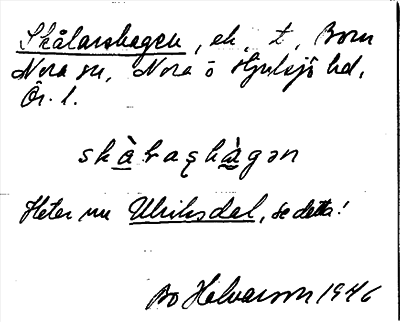 Skålarshagen, ek, t, Born
Nora sn, Nora o Hjulsjö hd,
Ör. l.
skàraʂhàgən
Heter nu Ulriksdal, se detta!
Bo Halvarson 1946